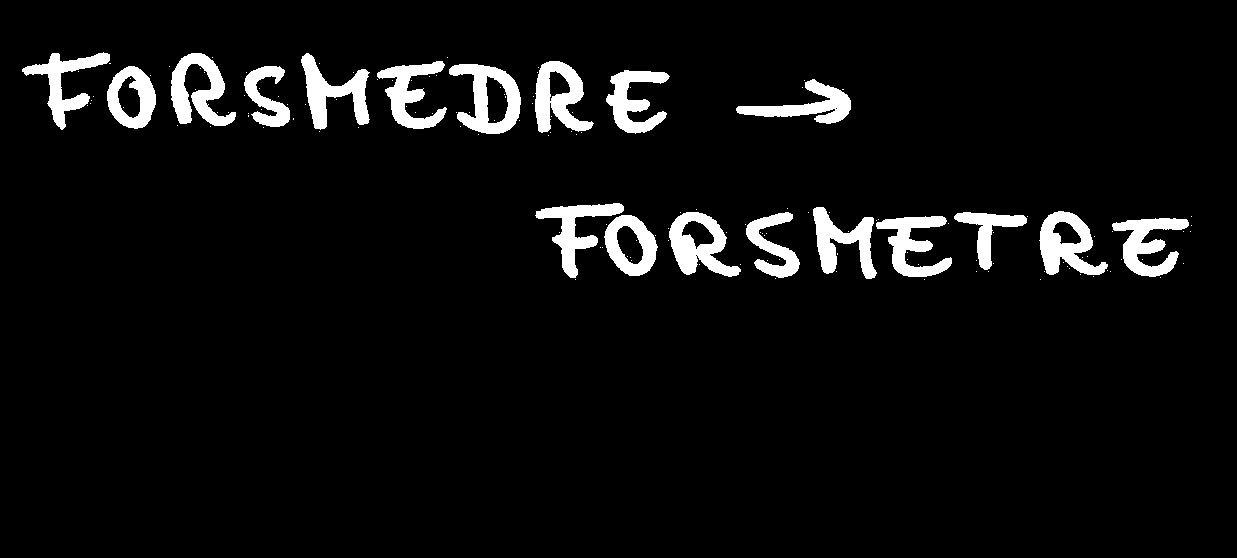 FORSMEDRE →
FORSMETRE